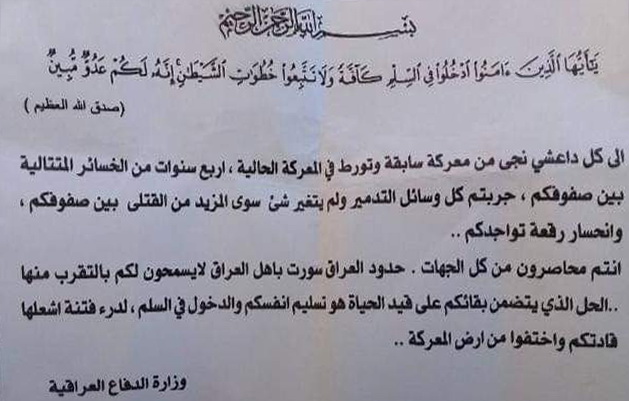 بسم الله الرحمن الرحيم
يَٰٓأَيُّهَا ٱلَّذِينَ ءَامَنُوا۟ ٱدْخُلُوا۟ فِى ٱلسِّلْمِ كَآفَّةً وَلَا تَتَّبِعُوا۟ خُطُوَٰتِ ٱلشَّيْطَٰنِ ۚ إِنَّهُۥ لَكُمْ عَدُوٌّ مُّبِينٌ
(صدق الله العظيم)
الى كل داعشي نجى من معركة سابقة وتورط في المعركة الحالية ، اربع سنوات من الخسائر المتتالية
بين صفوفكم ، جربتم كل وسائل التدمير ولم يتغير شئ سوى المزيد من القتلى بين صفوفكم ،
وانحسار رقعة تواجدكم ..
انتم محاصرون من كل الجهات . حدود العراق سورت باهل العراق لايسمحون لكم بالتقرب منها
..الحل الذي يتضمن بقائكم على قيد الحياة هو تسليم انفسكم والدخول في السلم ، لدرء فتنة اشعلها
قادتكم واختفوا من ارض المعركة ..
وزارة الدفاع العراقية